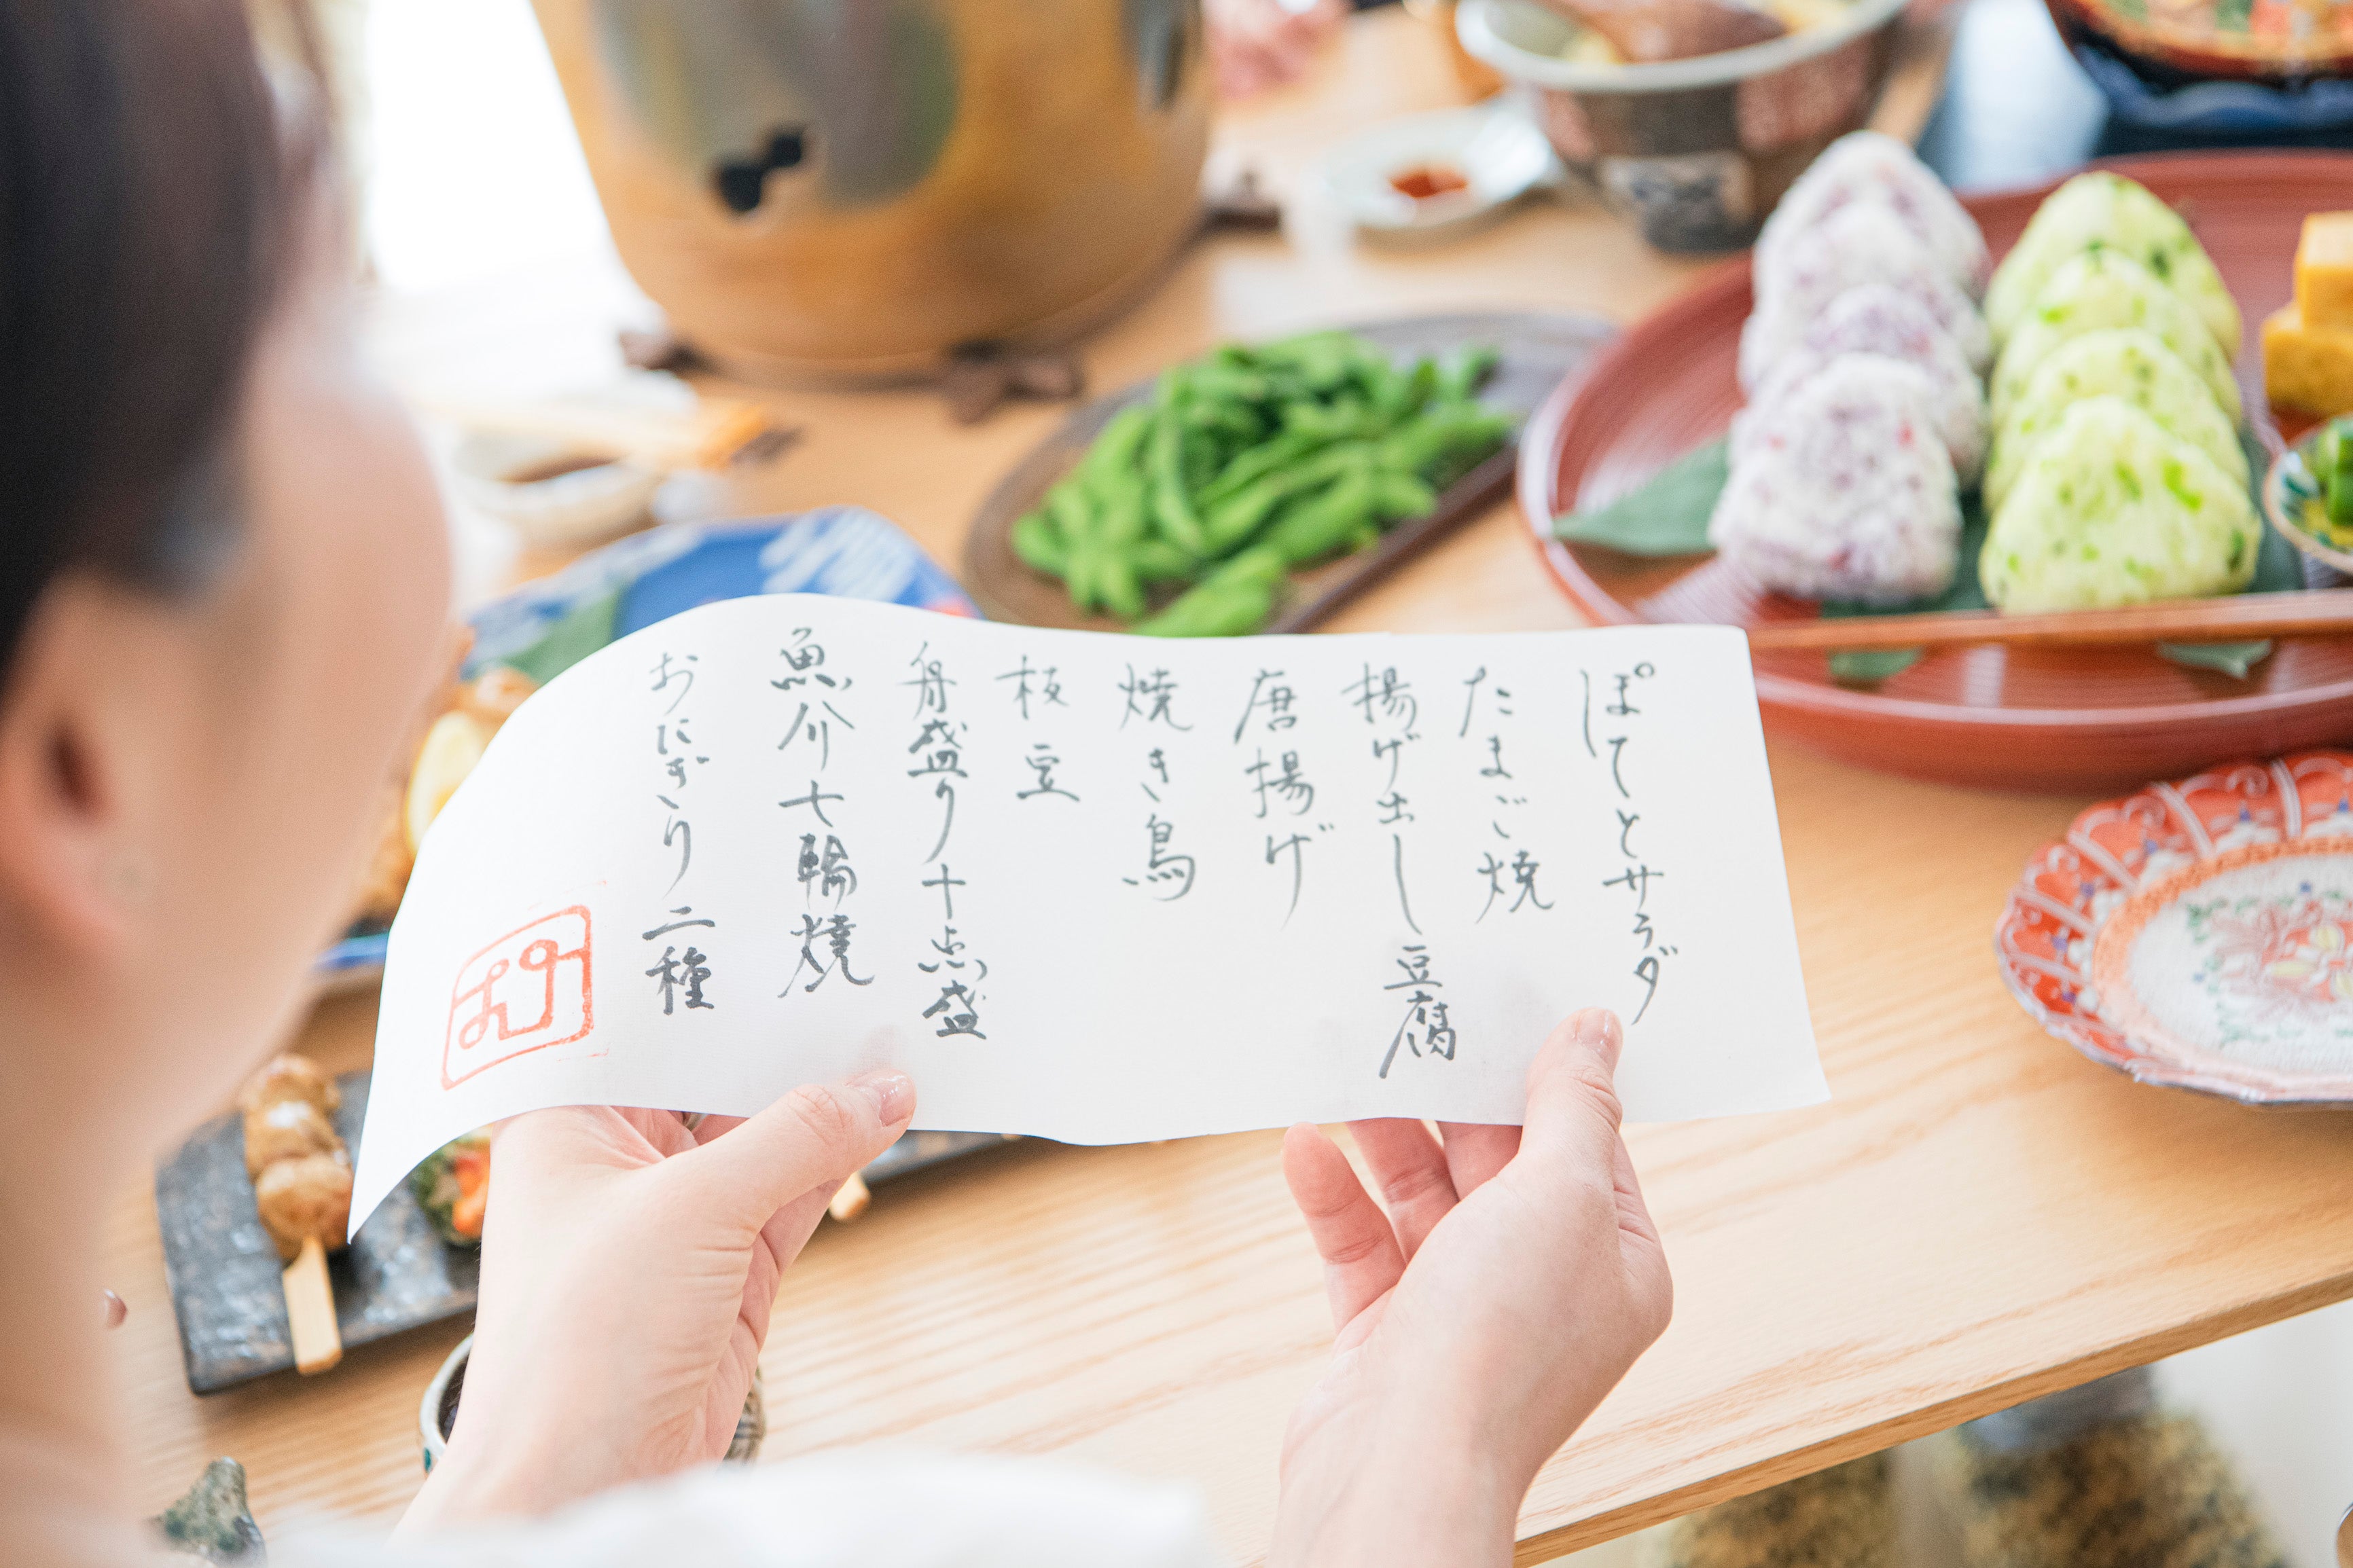 ぽてとサラダ
たまご焼
揚げ出し豆腐
唐揚げ
焼き鳥
枝豆
舟盛り十点盛
魚介七輪焼
おにぎり二種